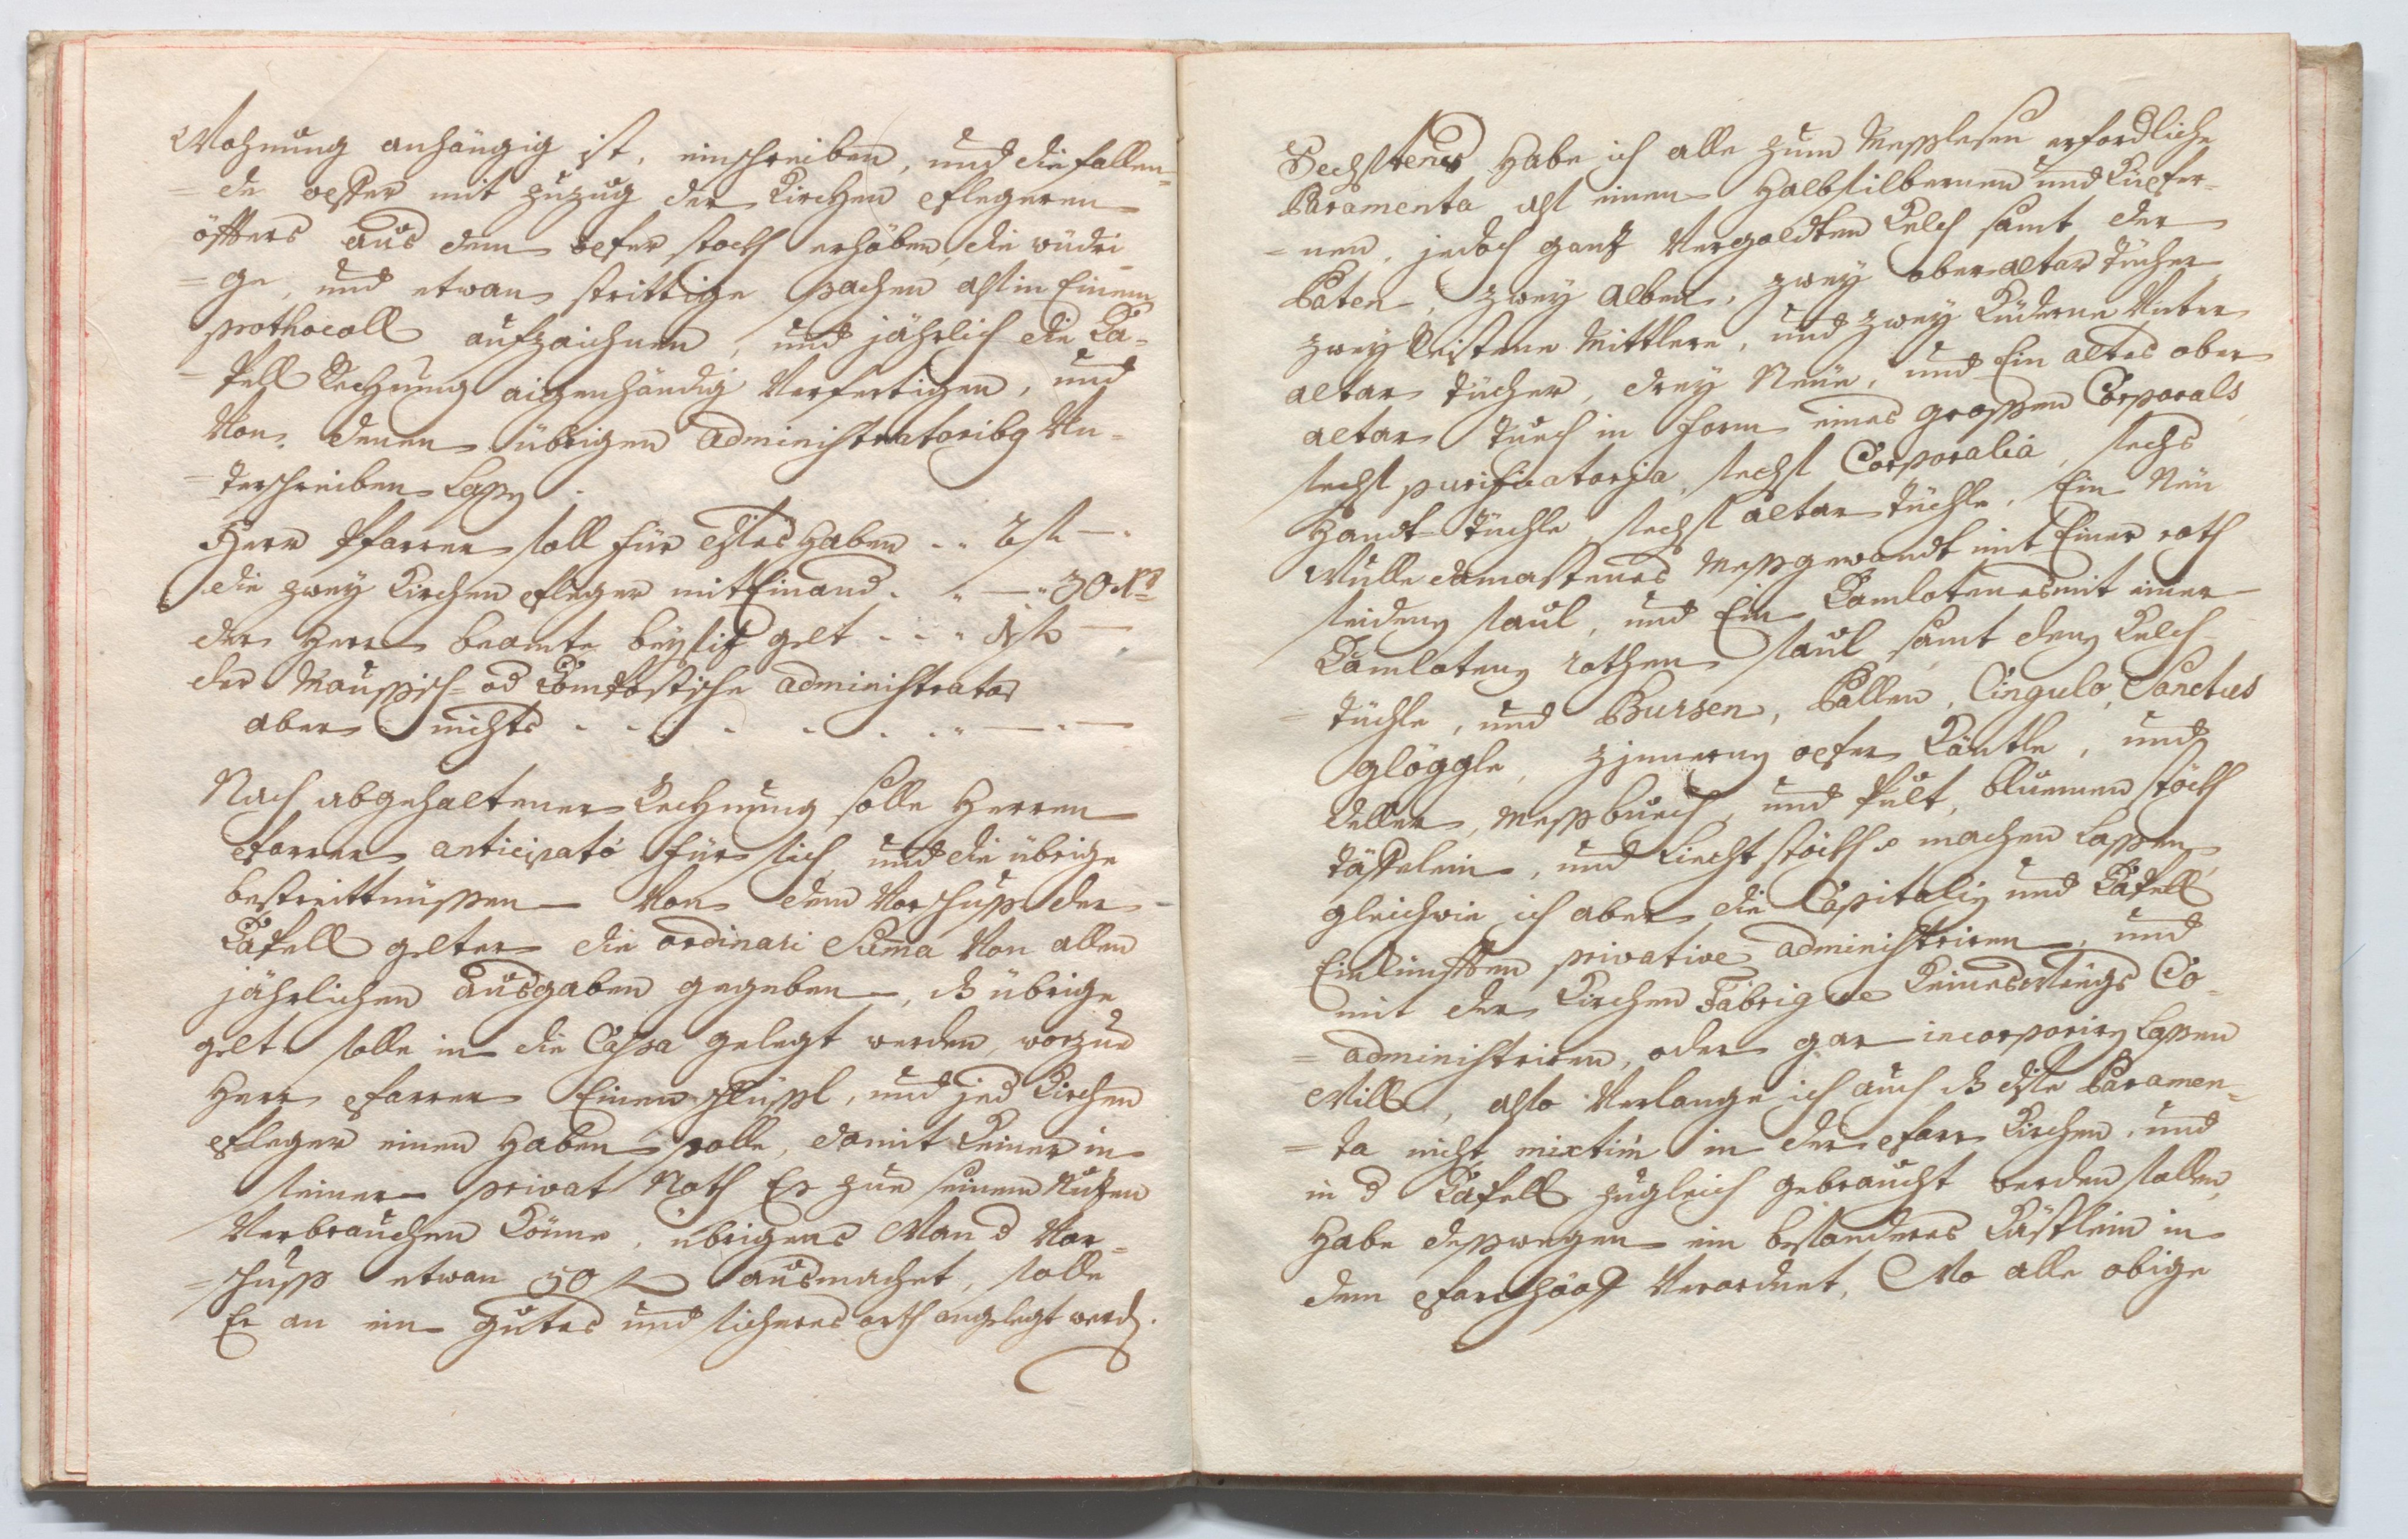 Wohnung anhängig ist, einschreiben, und die fallen-
=de opffer mit zuzug der Kirchen pflegeren
öffters aus dem opfer stockh erhöben, die würdi-
=ge, und etwan strittige sachen alst in Einem
prothocoll aufzaichnen, und jährlich die Ca-
=pell Rechnung aigenhändig Verfertigen, und
Von denen übrigen Administratoribg Un-
=terschreiben Lassen.
Herr Pfarrer soll für dises haben .. 2 fl —.
die zwey Kirchen pfleger mit Einand. .. — .. 30 xr
der Herr beamte beysitz gelt ... 1 fl —
der Maussisch- od administrator
aber nichts . . . . . . .. — . —
Nach abgehaltener Rechnung solle Herren
pfarrer anticipato für sich, und die übrige
bestreittnussen Von dem Vorschuss der
Capell gelter die ordinari Suma Von allen
jährlichen ausgaben gegeben, dß übrige
gelt solle in die Cassa gelegt werden, worzue
Herr pfarrer Einen schlüssl, und jed Kirchen
pfleger einen Haben solle, damit Keiner in
seiner privat Noth Es zue seinem Nutzen
Verbrauchen Könne, übrigens Wan d Vor-
=schuss etwan 50 fl ausmachet, solle
Er an ein gutes und sicheres orth angelegt werdn.
Sechstens Habe ich alle zum Messlesen erfordliche
Paramenta alst einen Halbsilbernen und Kupfer-
=nen, jedoch gantz Vergoldten Kelch samt der
Paten, zwey Alben, zwey ober altar tücher
zwey Reistene Mittlere, und zwey Kuderne Unter
altar tücher, drey Neüe, und Ein altes ober
altar tuech in form eines grossen Corporals,
sechst purificatoria, sechst Corporalia, sechs
Handt-tüchle, sechst altar tüchle, Ein Neü
Wulle damastenes Messgewandt mit Einer roth
seidenen staul, und Ein Camlotenes mit einer
Camloten rothen staul samt den Kelch-
=tüchle, und Bursen, Pallen, Cingulo, Sanctus
glöggle, zinnernen opfer Käntle, und
deller, Messbuech, und Pult, bluemen stöckh
täffelein, und Liechtstöckh machen Lassen,
gleichwie ich aber die Capitalien und Capell
Einkünfften privative administriren, und
mit der Kirchen Fabrique Keineswegs Co-
=administriren, oder gar incorporiren Lassen
Will, also Verlange ich auch dß dise Paramen-
=ta nicht mixtim in der pfarr Kirchen, und
in d Capell zugleich gebraucht werden sollen,
Habe desswegen ein besonderes Kästlein in
dem pfarrhooff Verordnet, Wo alle obige